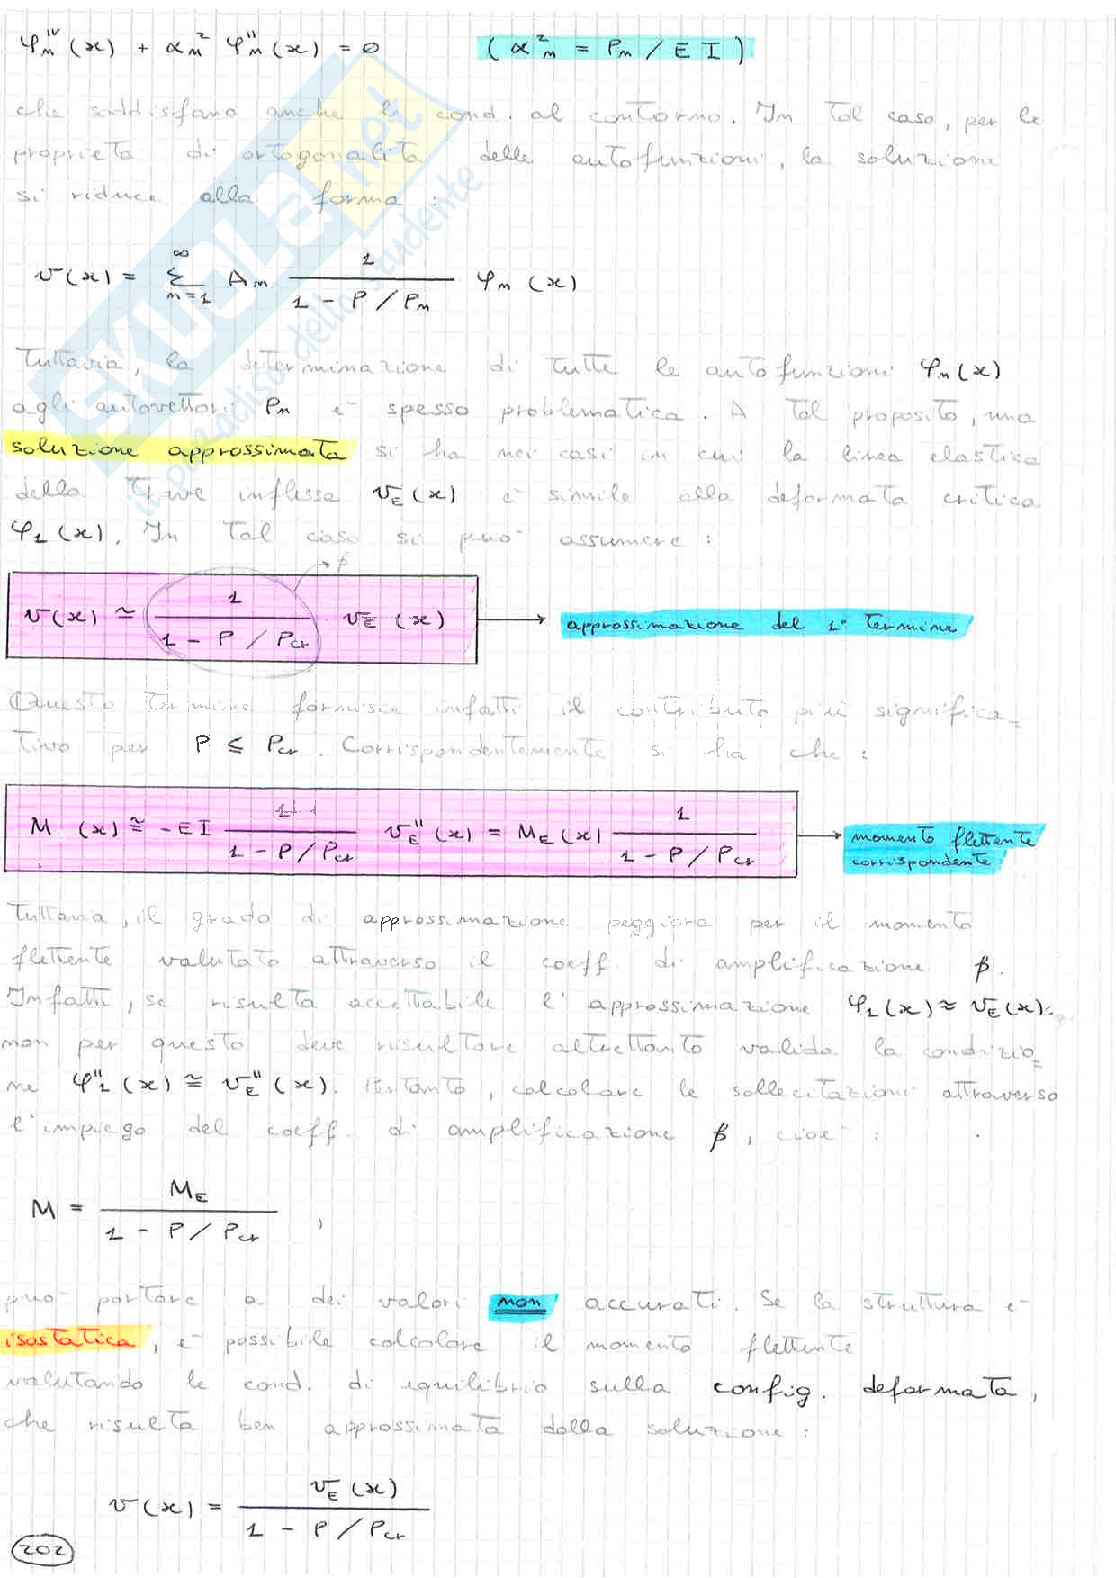 φₙᴵⱽ(x) + αₙ² φₙ''(x) = 0 (αₙ² = Pₙ / E I)
che soddisfano anche le cond. al contorno. In tal caso, per le
proprietà di ortogonalità delle autofunzioni, la soluzione
si riduce alla forma:
v(x) = Σ_{n=1}^{∞} Aₙ 1 / (1 - P/Pₙ) φₙ(x)
Tuttavia, la determinazione di tutte le autofunzioni φₙ(x)
agli autovettori Pₙ è spesso problematica. A tal proposito, una
soluzione approssimata si ha nei casi in cui la linea elastica
della trave inflessa v_E(x) è simile alla deformata critica
φ₁(x). In tal caso si può assumere:
→ β
v(x) ≃ 1 / (1 - P/P_cr) v_E(x) → approssimazione del 1° termine
Questo termine fornisce infatti il contributo più significa=
tivo per P ≤ P_cr. Corrispondentemente si ha che:
M(x) ≅ -EI 1 / (1 - P/P_cr) v_E''(x) = M_E(x) 1 / (1 - P/P_cr) → momento flettente
corrispondente
Tuttavia, il grado di approssimazione peggiora per il momento
flettente valutato attraverso il coeff. di amplificazione β.
Infatti, se risulta accettabile l'approssimazione φ₁(x) ≈ v_E(x):
non per questo deve risultare altrettanto valida la condizio=
ne φ₁''(x) ≅ v_E''(x). Pertanto, calcolare le sollecitazioni attraverso
l'impiego del coeff. di amplificazione β, cioè:
M = M_E / (1 - P/P_cr) ,
può portare a dei valori non accurati. Se la struttura è
isostatica, è possibile calcolare il momento flettente
valutando le cond. di equilibrio sulla config. deformata,
che risulta ben approssimata dalla soluzione:
v(x) = v_E(x) / (1 - P/P_cr)
202
SKUOLA.net
il paradiso dello studente